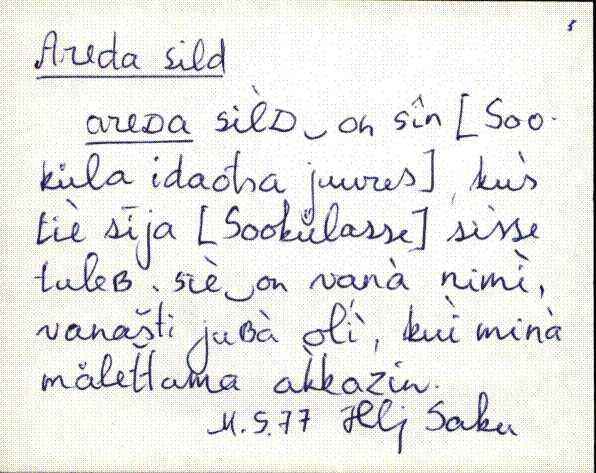 5
Areda sild
areDA silD‿on sin [Soo-
küla idaotsa juures], kus
tiè sīja [Sookülasse] sisse
tuleB. siè‿on vanà nimì,
vanašti juBà oĺi, kui minà
mäletťama akkazin.
11.5.77 Hlj Saku